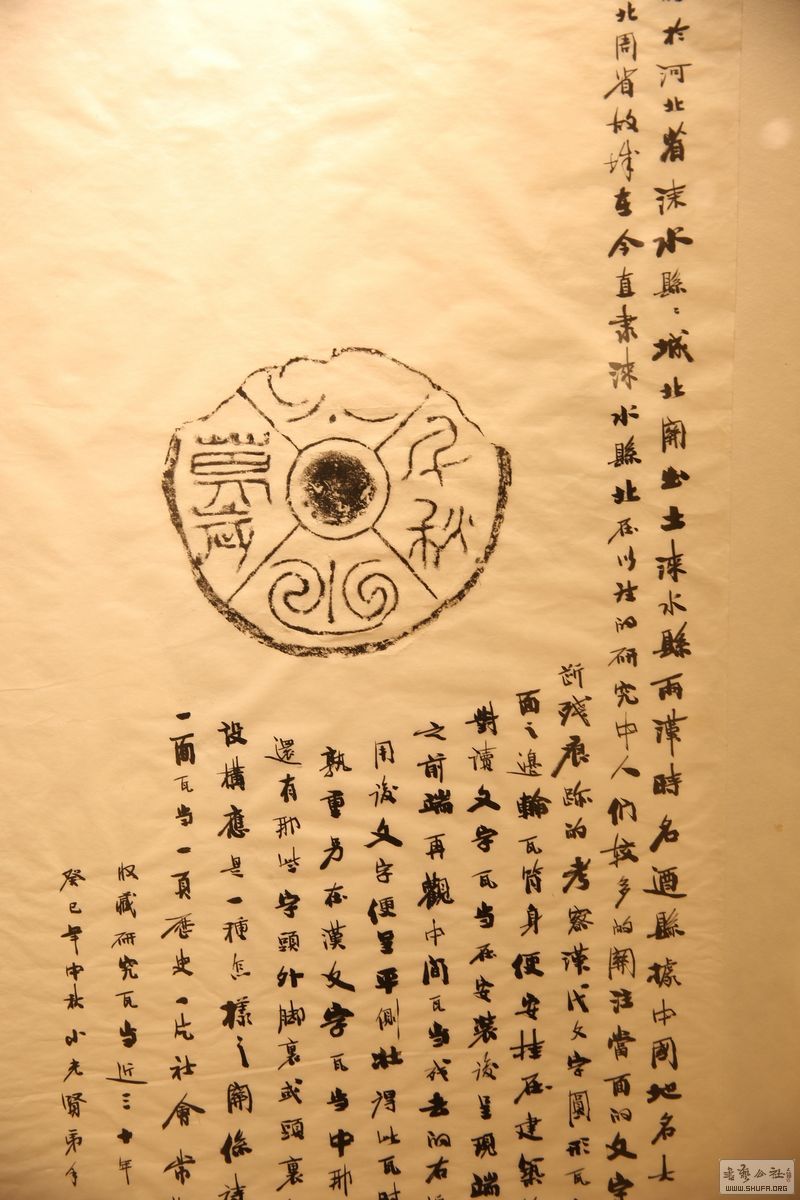 於河北省涞水縣﹕城北關出土涞水縣兩漢時名遒縣據中國地名大
北周省故城在今直隶涞水縣北在以往的研究中人们較多的關注當面的文字
断殘痕跡的考察漢代文字圓形瓦
面之邊輪瓦筒身便安挂在建築
對讀文字瓦当在安装後呈現端
之前端再觀中间瓦当我去的右
用後文字便呈平側狀得此瓦时
孰重另在漢文字瓦当中那
還有那些字頭外脚裏或頭裏
設構應是一種怎樣之關係
一面瓦当一頁歷史一片社會常
收藏研究瓦当近三十年
癸巳年中秋
千秋
萬歲
書法公社
WWW.SHUFA.ORG